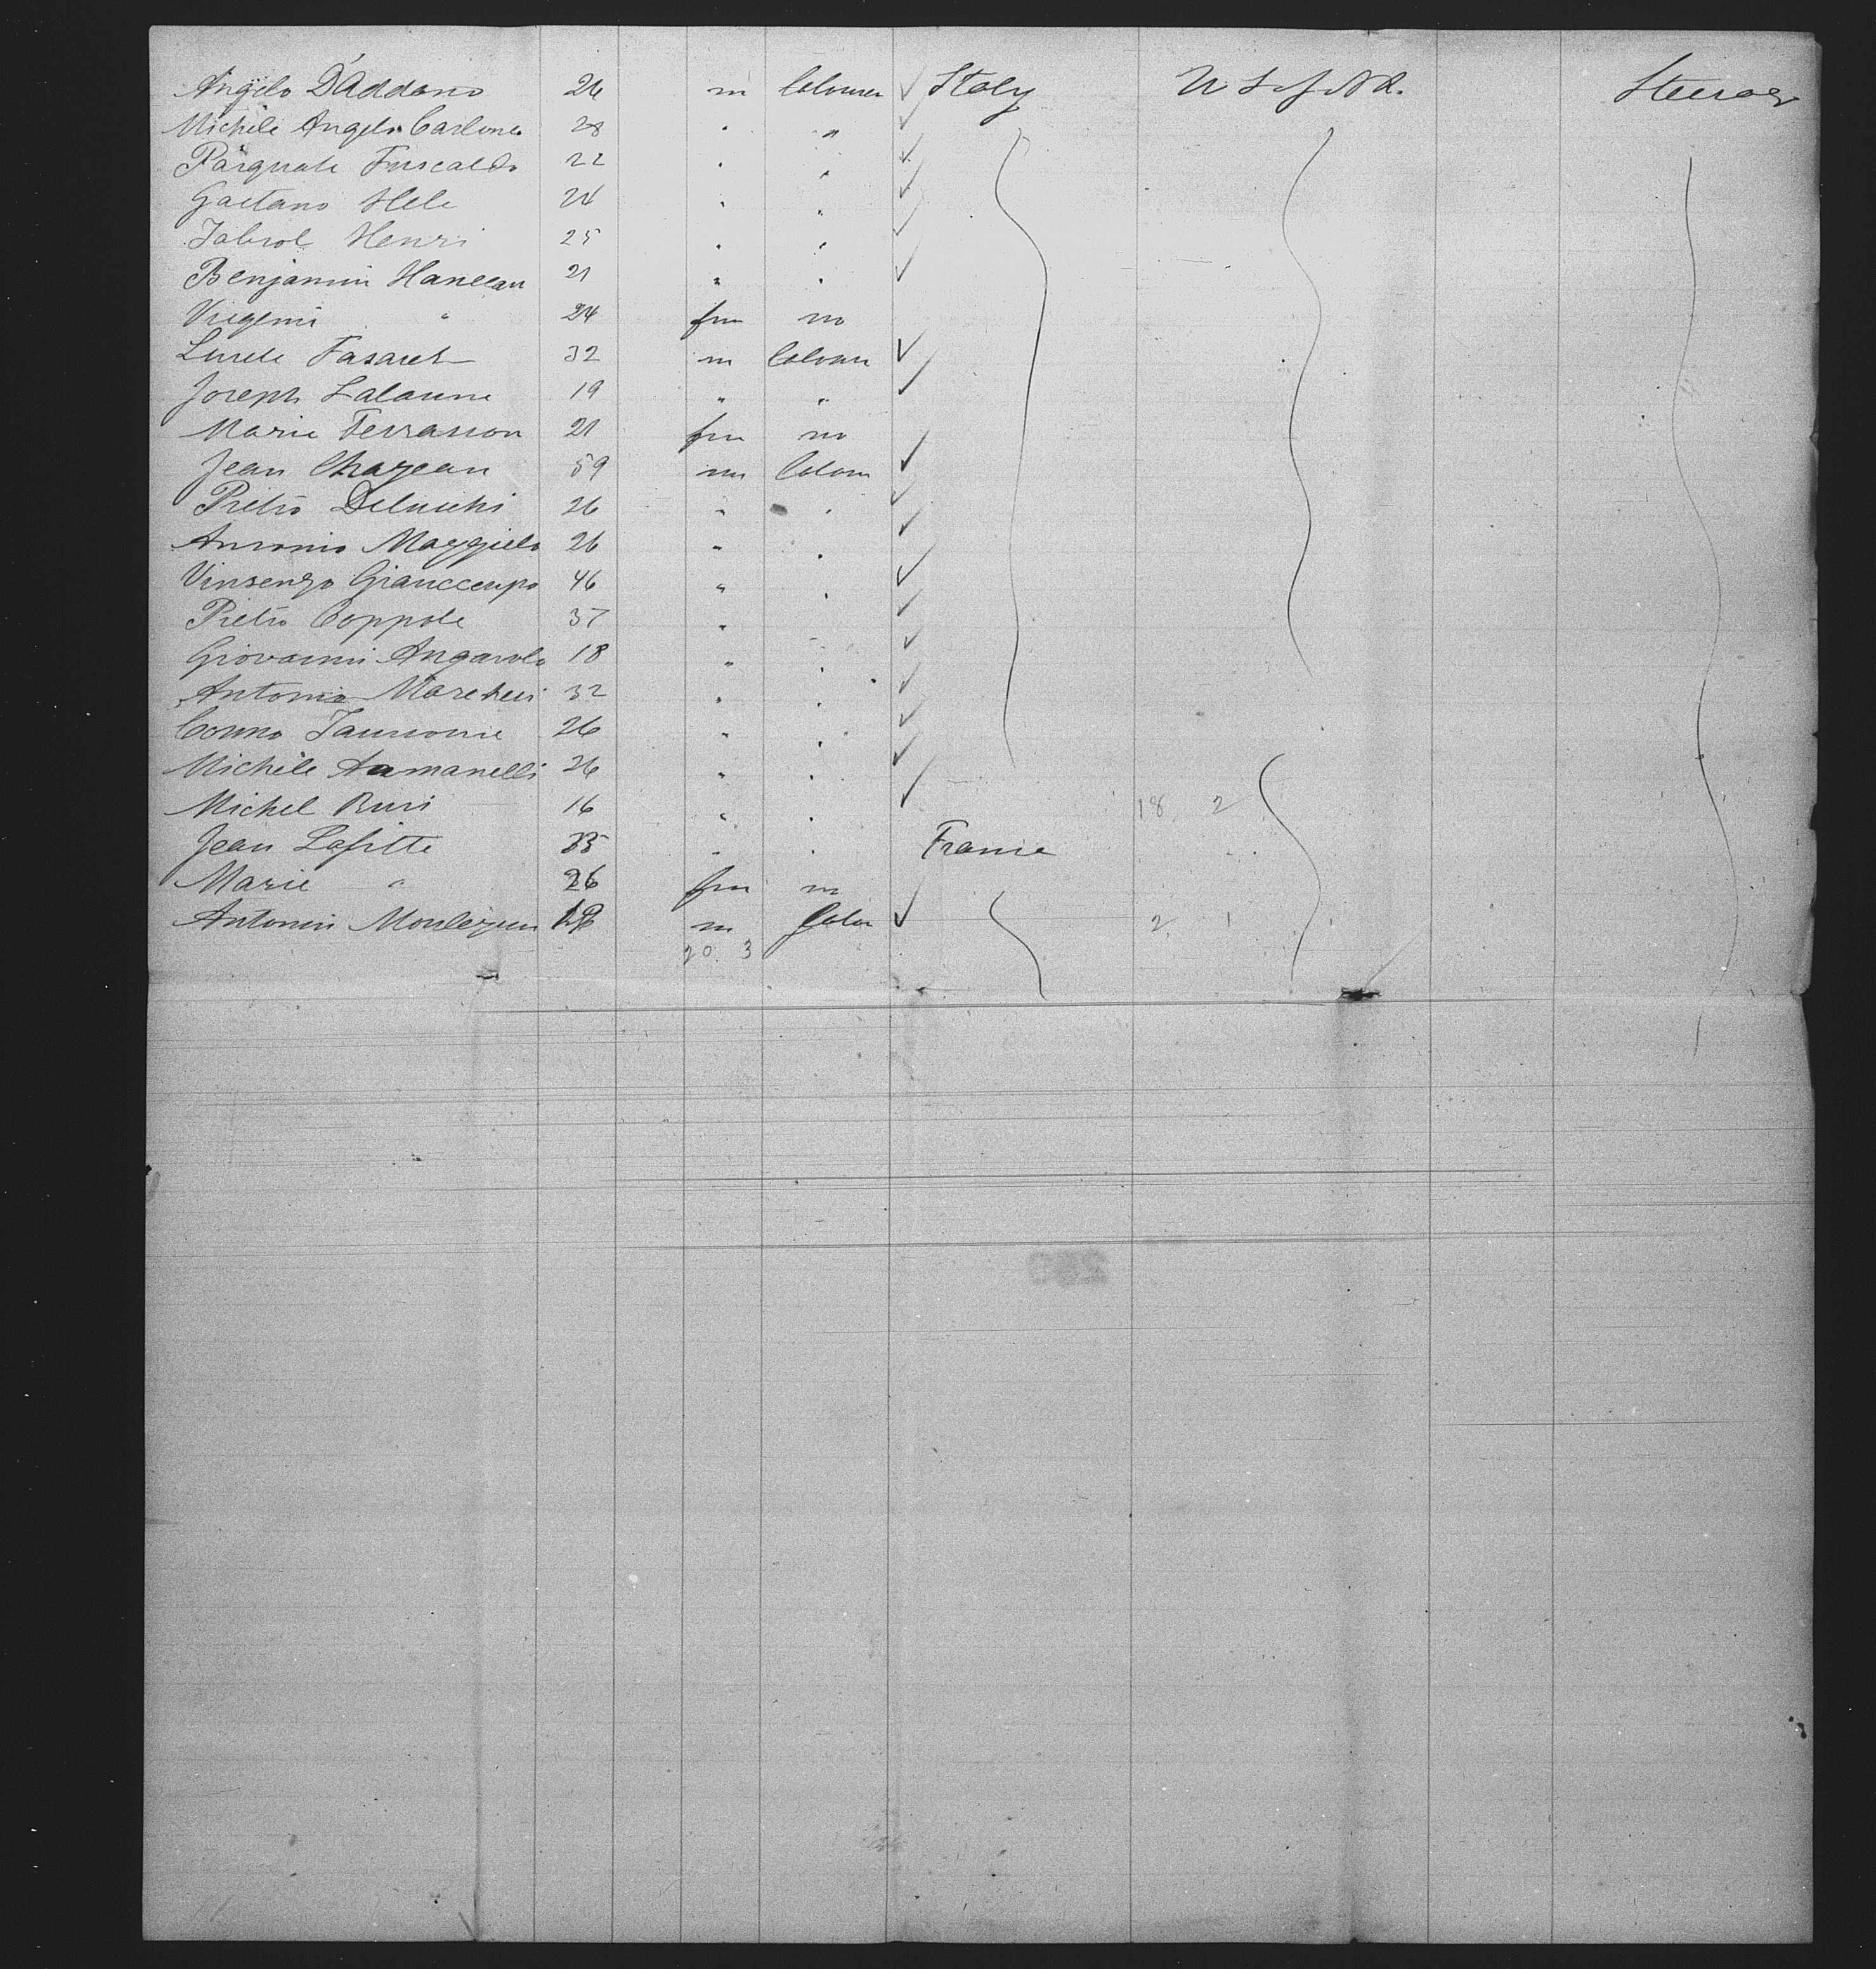 Angelo D'Addono 26 m Colonea ✓ Italy U S of NA. Steerage
Michele Angelo Carlone 28 " " ✓
Pasquale Fuscaldo 22 " " ✓
Gaetano Hele 24 " " ✓
Jabrol Henri 25 " " ✓
Benjamin Hanccan 21 " " ✓
Virgeni " 24 fm no
32 m Colonn ✓
Joseph Lalanne 19 " " ✓
Marie Terrasson 21 fm no
Jean Chazeau 59 m Colonn ✓
Pietro Delucchi 26 " " ✓
Antonio Maggielo 26 " " ✓
Vinsenzo Gianccenpo 46 " " ✓
Pietro Coppole 37 " " ✓
Giovanni Angarola 18 " " ✓
Antonio 32 " " ✓
26 " " ✓
Michele Aamanelli 26 " " ✓
Michel Buri 16 " " ✓ 18 2
Jean Lafitte 35 " " France
Marie " 26 fm no
Antonin Monlezun m Colon ✓ 2 1
20. 3